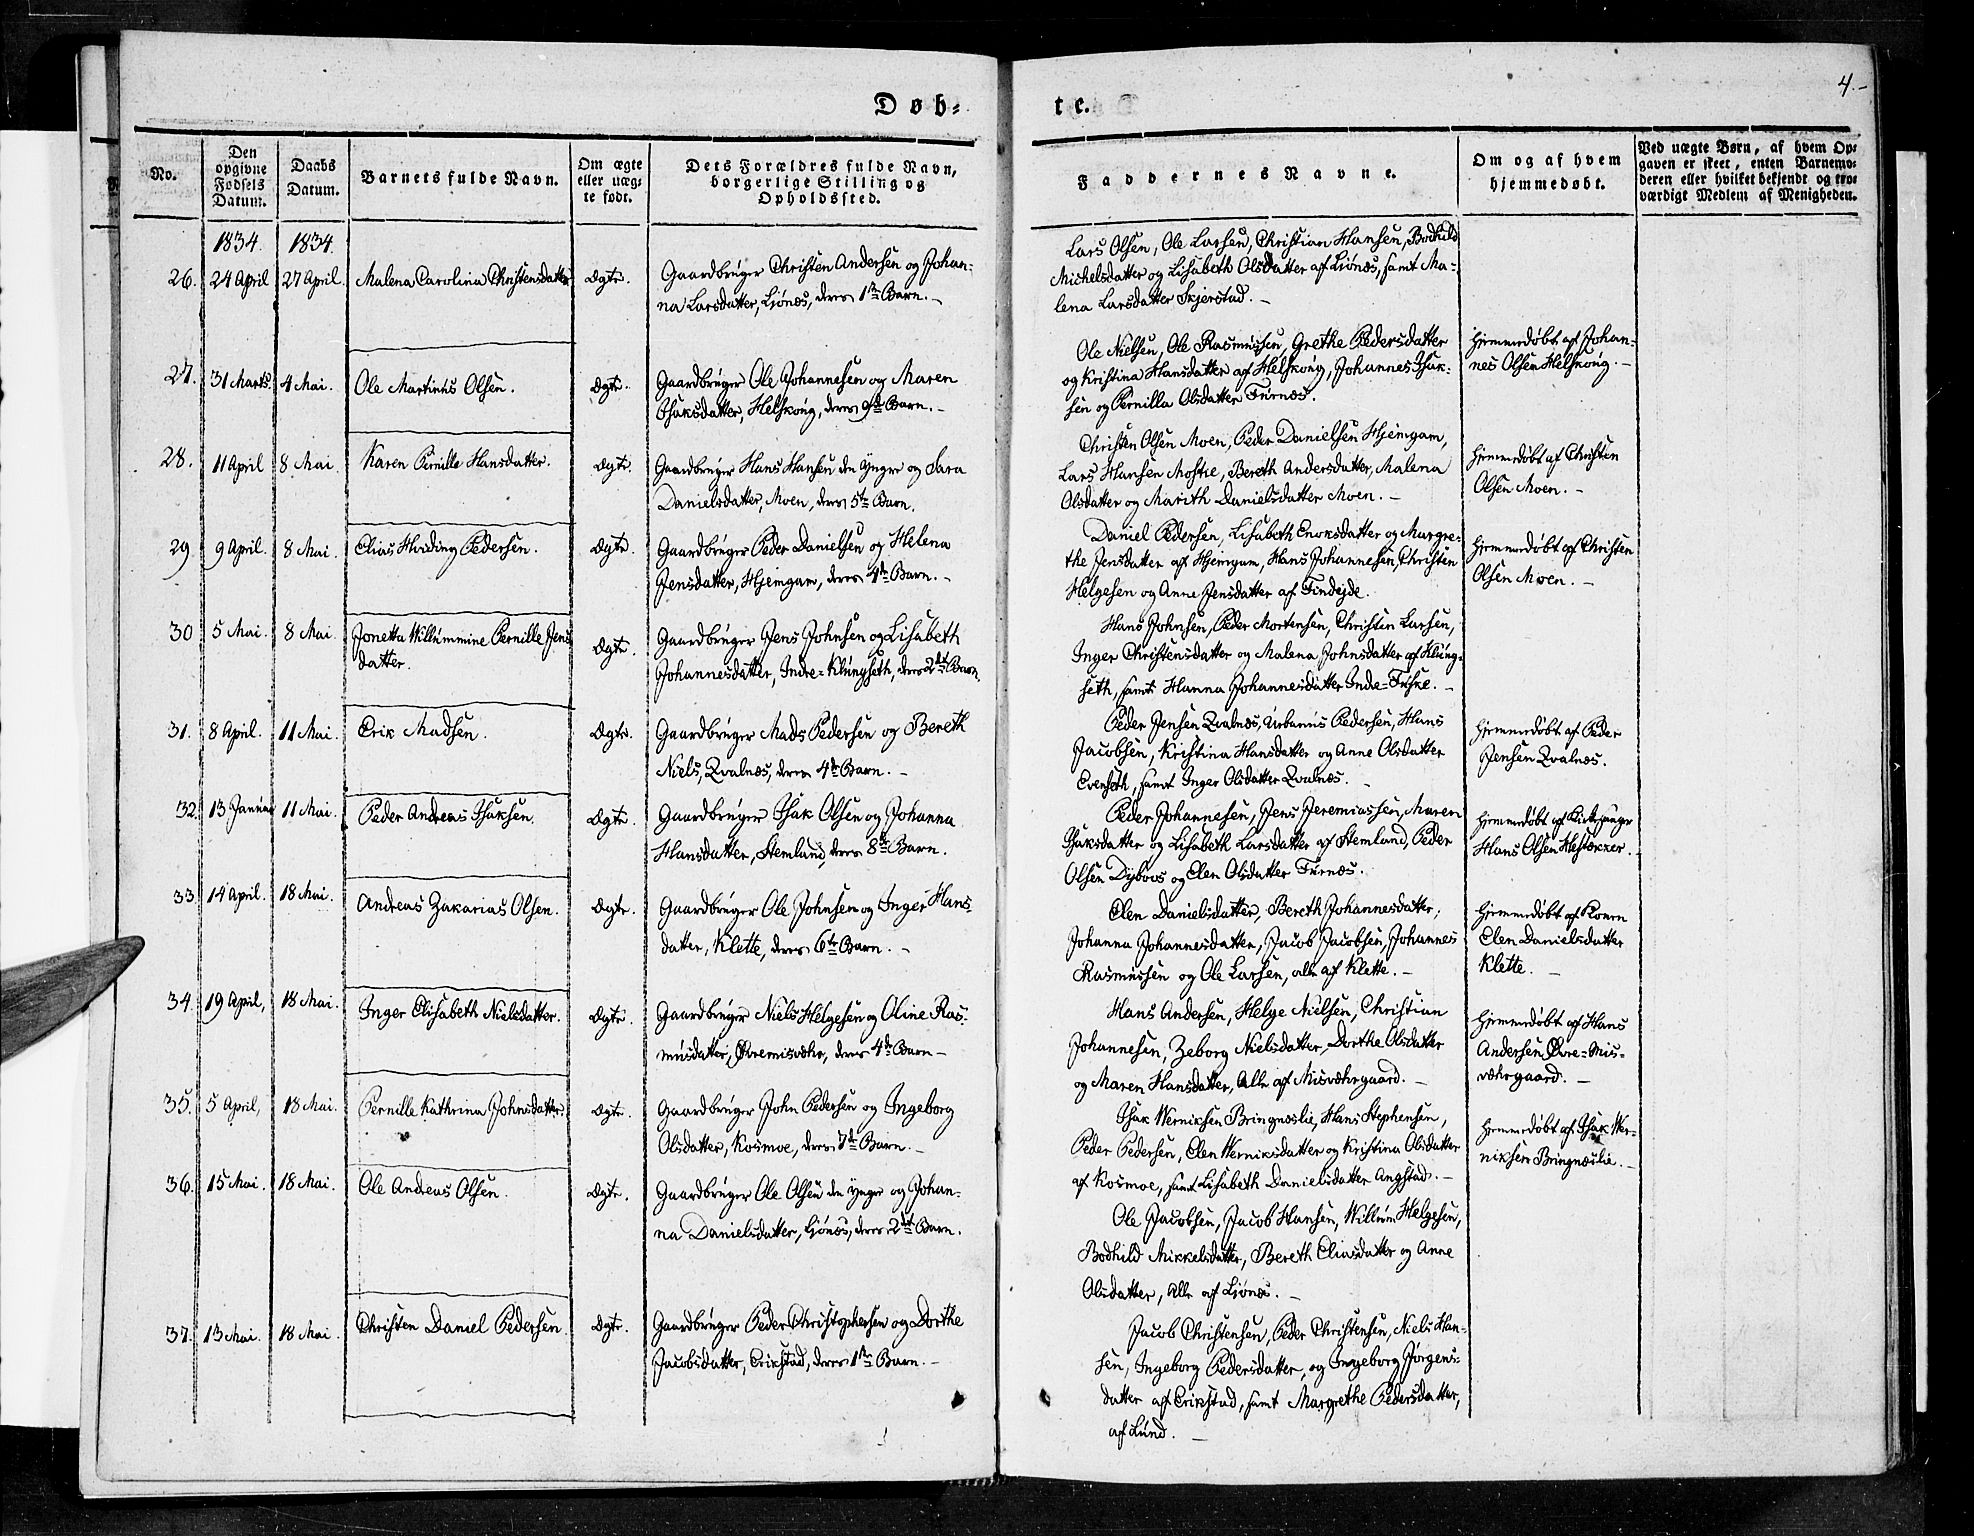 Døb=
te.
4.-
No.
Den
opgivne
Fødsels
Datum.
Daabs
Datum.
Barnets fulde Navn.
Om ægte
eller uæg-
te født.
Dets Forældres fulde Navn,
borgerlige Stilling og
Opholdssted.
Faddernes Navne.
Om og af hvem
hjemmedøbt.
Ved uægte Børn, af hvem Op-
gaven er skeet, enten Barnemo-
deren eller hvilket bekjendt og tro-
værdigt Medlem af Menigheden.
1834. 1834.
26. 24 April 27 April. Malena Carolina Christensdatter Ægte.
Gaardbruger Christen Andersen og Johan-
na Larsdatter, Ljönæs, deres 1ste Barn. -
Lars Olsen, Ole Larsen, Christian Hansen, Bodhild
Michelsdatter og Lisabeth Olsdatter af Liönæs, samt Ma-
lena Larsdatter Skjerstad. -
27. 31 Marts. 4 Mai. Ole Martinus Olsen. Ægte.
Gaardbruger Ole Johannesen og Maren
Isaksdatter, Helskoug, deres 9de Barn. -
Ole Nielsen, Ole Rasmussen, Grethe Pedersdatter
og Kristina Hansdatter af Helskoug, Johannes Isak-
sen og Pernilla Olsdatter Furnæs.
Hjemmedøbt af Johan-
nes Olsen Helskoug. -
28. 11 April 8 Mai. Karen Pernille Hansdatter. Ægte.
Gaardbruger Hans Hansen den Ynger og Sara
Danielsdatter, Moen, deres 5te Barn.
Christen Olsen Moen, Peder Danielsen Hjemgam,
Lars Hansen Moshe, Bereth Andersdatter, Malena
Olsdatter og Marith Danielsdatter Moen. -
Hjemmedøbt af Christen
Olsen Moen. -
29. 9 April. 8 Mai. Elias Hveding Pedersen. Ægte.
Gaardbruger Peder Danielsen og Helena
Jensdatter, Hjemgam, deres 4de Barn. -
Daniel Pedersen, Lisabeth Enoksdatter og Margre-
the Jensdatter af Hjemgam, Hans Johannesen, Christen
Helgesen og Anne Jensdatter af Tindejde.
Hjemmedøbt af Christen
Olsen Moen. -
30 5 Mai. 8 Mai. Jonetta Willummine Pernille Jens
datter. Ægte.
Gaardbruger Jens Johnsen og Lisabeth
Johannesdatter, Indre=Klungseth, deres 2det Barn.
Hans Johnsen, Peder Mortensen, Christen Larsen,
Inger Christensdatter og Malena Johnsdatter af Klung-
seth, samt Hanna Johannesdatter Indre=Fuske. -
31. 8 April. 11 Mai. Erik Madsen. Ægte.
Gaardbruger Mads Pedersen og Bereth
Niels, Qvalnæs, deres 4de Barn. -
Peder Jensen Qvalnæs, Urbanus Pedersen, Hans
Jacobsen, Kristina Hansdatter og Anne Olsdatter
Evenseth, samt Inger Olsdatter Qvalnæs. -
Hjemmedøbt af Peder
Jensen Qvalnæs.
32. 13 Januar 11 Mai. Peder Andreas Isaksen. Ægte.
Gaardbruger Isak Olsen og Johanna
Hansdatter, Stemland, deres 8de Barn.
Peder Johannesen, Jens Jeremiassen, Maren
Isaksdatter og Lisabeth Larsdatter af Stemland, Peder
Olsen Dybvos og Elen Olsdatter Furnæs.
Hjemmedøbt af Kirkesanger
Hans Olsen Hestekker.
33. 14 April. 18 Mai. Andreas Zakarias Olsen. Ægte.
Gaardbruger Ole Johnsen og Inger Hans-
datter, Klette, deres 6te Barn. -
Elen Danielsdatter, Bereth Johannesdatter,
Johanna Johannesdatter, Jacob Jacobsen, Johannes
Rasmussen og Ole Larsen, alle af Klette. -
Hjemmedøbt af Konen
Elen Danielsdatter
Klette. -
34. 19 April, 18 Mai. Inger Elisabeth Nielsdatter. Ægte.
Gaardbruger Niels Helgesen og Oline Ras-
musdatter, Øvremisvæhr, deres 4de Barn -
Hans Andersen, Helge Nielsen, Christian
Johannesen, Zeborg Nielsdatter, Dorthe Olsdatter
og Maren Hansdatter, Alle af Misvæhrgaard. -
Hjemmedøbt af Hans
Andersen Øvre=Mis-
væhrgaard. -
35. 5 April, 18 Mai. Pernille Kathrina Johnsdatter. Ægte.
Gaardbruger John Pedersen og Ingeborg
Olsdatter, Kosmoe, deres 7de Barn. -
Isak Werniksen Bringnæslie, Hans Stephensen,
Peder Pedersen, Elen Werniksdatter og Kristina Olsdatter
af Kosmoe, samt Lisabeth Danielsdatter Angstad. -
Hjemmedøbt af Isak Wer-
niksen Bringnæslie. -
36. 15 Mai. 18 Mai. Ole Andreas Olsen. Ægte.
Gaardbruger Ole Olsen den Ynger og Johan-
na Danielsdatter, Ljönæs, deres 2det Barn.
Ole Jacobsen, Jacob Hansen, Willum Helgesen,
Bodhild Mikkelsdatter, Bereth Eliasdatter og Anne
Olsdatter, Alle af Liönæs. -
37. 13 Mai. 18 Mai. Christen Daniel Pedersen Ægte.
Gaardbruger Peder Christophersen og Dorthe
Jacobsdatter, Erikstad, deres 1ste Barn. -
Jacob Christensen, Peder Christensen, Niels Han-
sen, Ingeborg Pedersdatter, og Ingeborg Jørgens-
datter af Erikstad, samt Margrethe Pedersdatter,
af Lund. -